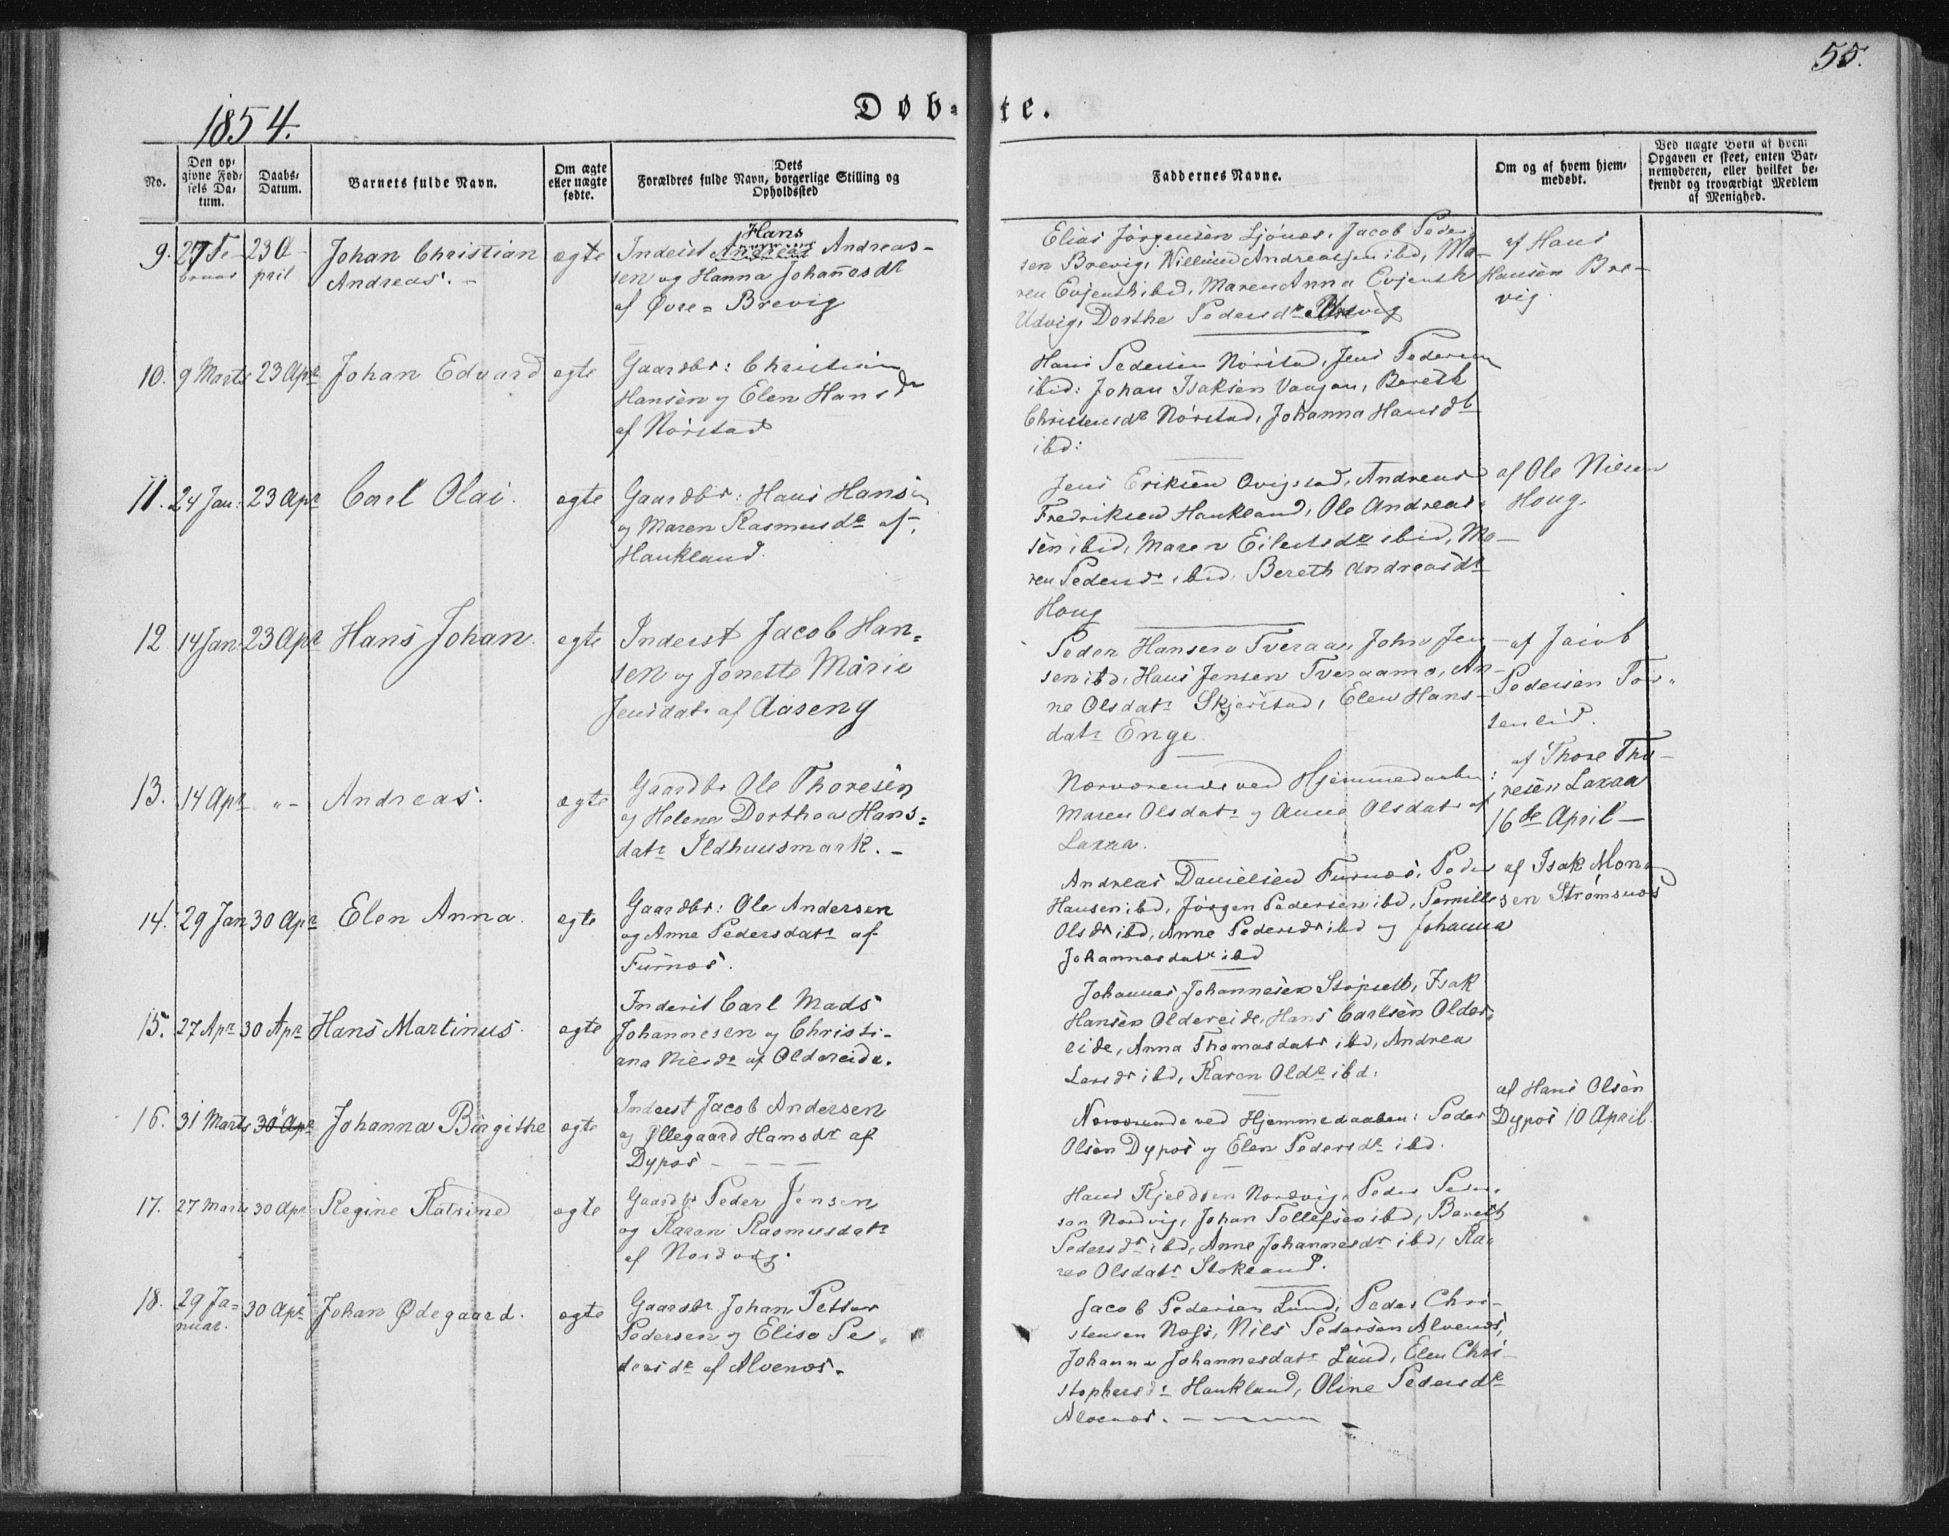 55.
1854.
Döb-te.
No.
Den op-
givne Fød-
sels Da-
tum.
Daabs-
Datum.
Barnets fulde Navn.
Om ægte
eller uægte
fødte.
Dets
Forældres fulde Navn, borgerlige Stilling og
Opholdssted
Faddernes Navne.
Om og af hvem hjem-
medøbt.
Ved uægte Børn af hvem
Opgaven er skeet, enten Bar-
nemoderen, eller hvilket be-
kjendt og troværdigt Medlem
af Menighed.
9.
27 Fe-
bruar
23 A-
pril
Johan Christian
Andreas.
ægte
Hans
Inderst Andreas Andreas-
sen og Hanna Johannesdr
af Øvre-Brevig
Elias Jörgensen Ljönes, Jacob Peder-
sen Brevig, Andreassen ibid, Ma-
ren Evjenth ibid, Maren Anna Evjenth
Udvig, Dorthe Pedersdr Brevig
af Hans
Hansen Bre-
vig.
10.
9 Marts
23 Apr
Johan Eduard
egte
Gaardbr: Christian
Hansen og Elen Hansdr
af Nörstad
Hans Pedersen Nörstad, Jens Pedersen
ibid: Johan Isaksen Vaagan, Bereth
Christensdr Nörstad, Johanna Hansdr
ibd:
11.
24 Jan:
23 Apr
Carl Olai.
egte
Gaardbr: Hans Hansen
og Maren Rasmusdr af
Haukland.
Jens Eriksen Qvigstad, Andreas
Fredriksen Haukland, Ole Andreas-
sen ibid, Maren Eilertsdr ibid, Ma-
ren Pedersdr ibid, Bereth Andreasdr
Houg
af Ole Nilsen
Houg.
12.
14 Jan
23 Apr
Hans Johan.
egte
Inderst Jacob Han-
sen og Jonette Marie
Jensdatr af Aaseng
Peder Hansen Tveraa, John Jen-
sen ibd, Hans Jensen Tveraamo, An-
ne Olsdatr Skjerstad, Elen Hans-
datr Enge.
af Jacob
Pedersen Tor-
senlid.
13.
14 Apr
"-
Andreas.
ægte
Gaardb. Ole Thoresen
og Helena Dorthea Hans-
datr Ildhuusmark.
Nærværende ved Hjemmedaaben:
Maren Olsdatr og Anne Olsdatr af
Laxaa.
af Thore Tho-
resen Laxaa
16de April
14.
29 Jan
30 Apr
Elen Anna.
egte
Gaardbr: Ole Andersen
og Anne Pedersdatr af
Furnæs.
Andreas Danielsen Furnæs, Peder
Hansen ibd, Jörgen Pedersen ibd, Pernille
Olsdr ibd, Anne Pedersdr ibd og Johanna
Johannesdatr ibd
af Isak Mon-
sen Strømsnæs
15.
27 Apr
30 Apr
Hans Martinus.
egte
Inderst Carl Mads
Johannesen og Christi-
ana Nielsdr af Oldereide.
Johannes Johannesen Stopselb, Isak
Hansen Oldereide, Hans Carlsen Older-
eide, Anna Thomasdatr ibd, Andrea
Larsdr ibd, Karen Olsdr ibd.
16.
31 Marts
30 Apr
Johanna Birgithe
egte
Inderst Jacob Andersen
og Ollegaard Hansdr af
Dypos
Nærværende ved Hjemmedaaben: Peder
Olsen Dypos og Elen Pedersdr ibd.
af Hans Olsen
Dypos 10 April.
17.
27 Marts
30 Apr
Regine Katrine
egte
Gaardbr Peder Jensen
og Karen Rasmusdatr
af Nordvig.
Hans Kjeldsen Nordvig, Peder Peder-
sen Nordvig, Johan Tollefsen ibd, Bereth
Pedersdr ibd, Anne Johannesdr ibd, Ka-
ren Olsdatr Stokland.
18.
29 Ja-
nuar.
30 Apr
Johan Ødegaard.
egte
Gaardbr Johan Petter
Pedersen og Elisa Pe-
dersdr af Alvenæs.
Jacob Pedersen Lund, Peder Chri-
stensen Næss, Nils Pedersen Alvenæs,
Johanna Johannesdatr Lund, Elen Chri-
stophersdr Haukland, Oline Pedersdr
Alvenæs.